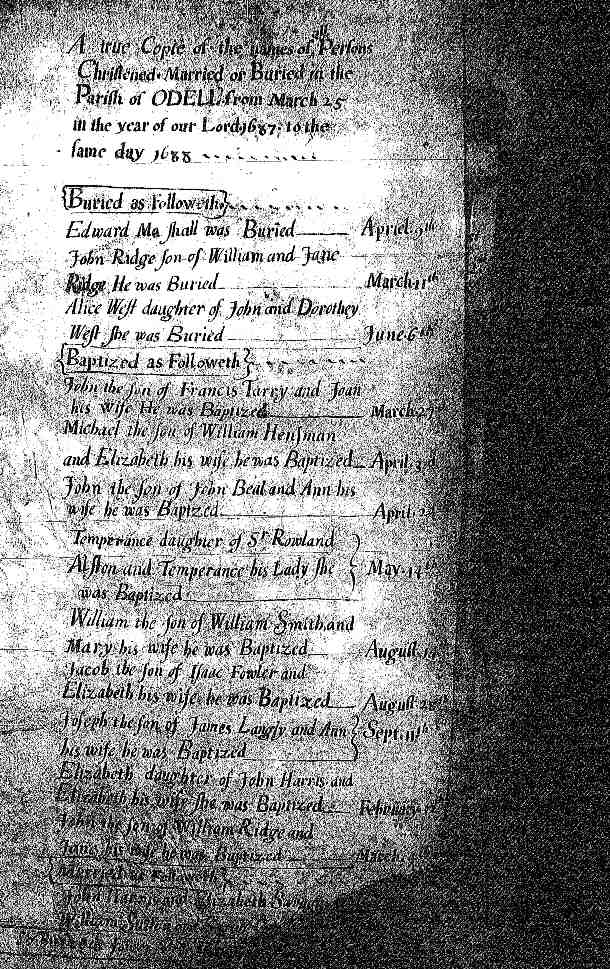 A true Copie of the names of all Persons
Christened Married or Buried in the
Parish of ODELL from March 25
in the year of our Lord 1687; to the
same day 1688
Buried as Followeth
Edward Ma shall was Buried April 9th
John Ridge son of William and Jane
Ridge He was Buried March 11th
Alice West daughter of John and Dorothey
West she was Buried June 6th
Baptized as Followeth
John the son of Francis and Joan
his wife He was Baptized March
Michael the son of William Hensman
and Elizabeth his wife he was Baptized April
John the son of John Beal and Ann his
wife he was Baptized April
Temperance daughter of Sr Rowland
Alston and Temperance his Lady she May 14th
was Baptized
William the son of William Smith and
Mary his wife he was Baptized August
Jacob the son of Isaac Fowler and
Elizabeth his wife he was Baptized August
Joseph the son of James and Ann Sept. 11th
his wife he was Baptized
Elizabeth daughter of John Harris and
Elizabeth his wife she was Baptized February
John the son of William Ridge and
Jane his wife he was Baptized March
Married as Followeth
John Harris and Elizabeth
William and